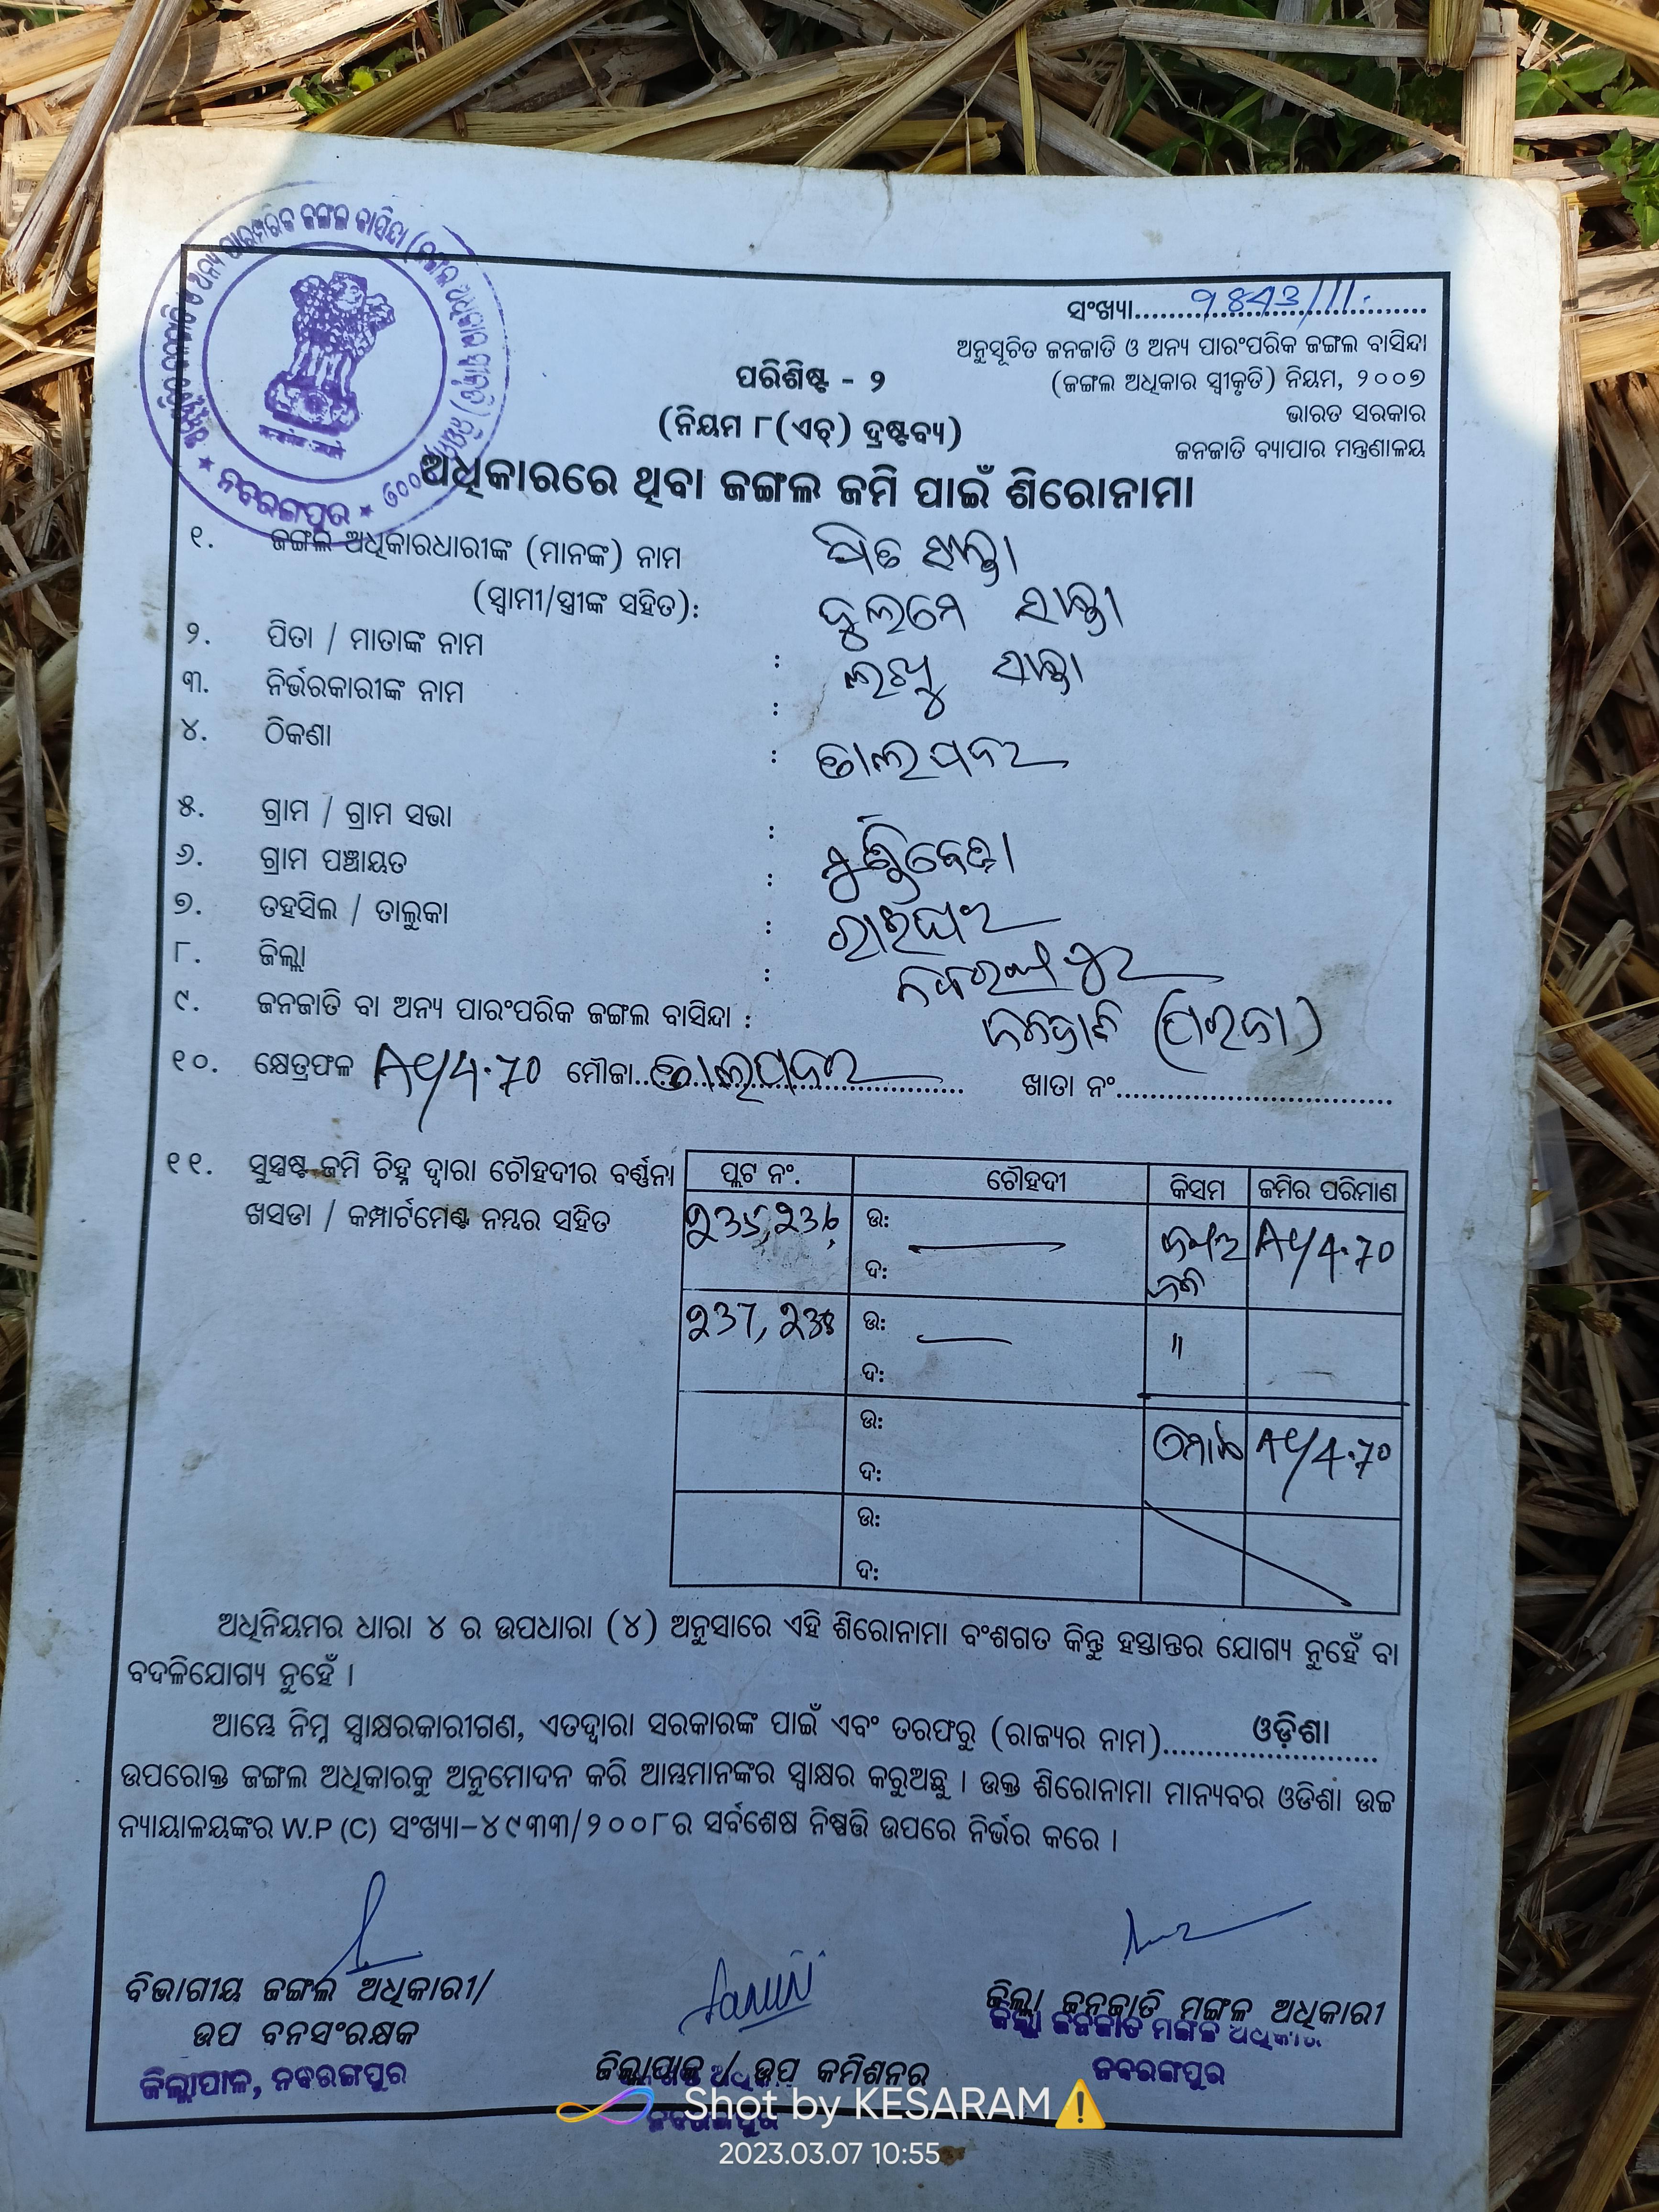 ସଂଖ୍ୟା
ଅନୁସୂଚିତ ଜନଜାତି ଓ ଅନ୍ୟ ପାରଂପରିକ ଜଙ୍ଗଲ ବାସିନ୍ଦା
(ଜଙ୍ଗଲ ଅଧିକାର ସ୍ୱୀକୃତି) ନିୟମ, ୨୦୦୭
ଭାରତ ସରକାର
ଜନଜାତି ବ୍ୟାପାର ମନ୍ତ୍ରଣାଳୟ
ପରିଶିଷ୍ଟ - ୨
(ନିୟମ ୮(ଏଚ୍) ଦ୍ରଷ୍ଟବ୍ୟ)
ଅଧିକାରରେ ଥିବା ଜଙ୍ଗଲ ଜମି ପାଇଁ ଶିରୋନାମା
ନବରଙ୍ଗପୁର
୧. ଜଙ୍ଗଲ ଅଧିକାରଧାରୀଙ୍କ (ମାନଙ୍କ) ନାମ
(ସ୍ୱାମୀ/ସ୍ତ୍ରୀଙ୍କ ସହିତ):
୨. ପିତା / ମାତାଙ୍କ ନାମ :
୩. ନିର୍ଭରକାରୀଙ୍କ ନାମ :
୪. ଠିକଣା :
୫. ଗ୍ରାମ / ଗ୍ରାମ ସଭା :
୬. ଗ୍ରାମ ପଞ୍ଚାୟତ :
୭. ତହସିଲ / ତାଲୁକା : ରାଇଘର
୮. ଜିଲ୍ଲା : ନବରଙ୍ଗପୁର
୯. ଜନଜାତି ବା ଅନ୍ୟ ପାରଂପରିକ ଜଙ୍ଗଲ ବାସିନ୍ଦା : ଜନଜାତି
୧୦. କ୍ଷେତ୍ରଫଳ 4.70 ମୌଜା ଖାତା ନଂ
୧୧. ସୁସ୍ପଷ୍ଟ ଜମି ଚିହ୍ନ ଦ୍ୱାରା ଚୌହଦୀର ବର୍ଣ୍ଣନା
ଖସଡା / କମ୍ପାର୍ଟମେଣ୍ଟ ନମ୍ବର ସହିତ
ପ୍ଲଟ ନଂ. ଚୌହଦୀ କିସମ ଜମିର ପରିମାଣ
235, 236, ଉ: 4.70
ଦ:
237, 238 ଉ: "
ଦ:
ଉ: 4.70
ଦ:
ଉ:
ଦ:
ଅଧିନିୟମର ଧାରା ୪ ର ଉପଧାରା (୪) ଅନୁସାରେ ଏହି ଶିରୋନାମା ବଂଶଗତ କିନ୍ତୁ ହସ୍ତାନ୍ତର ଯୋଗ୍ୟ ନୁହେଁ ବା
ବଦଳିଯୋଗ୍ୟ ନୁହେଁ ।
ଆମ୍ଭେ ନିମ୍ନ ସ୍ୱାକ୍ଷରକାରୀଗଣ, ଏତଦ୍ଦ୍ୱାରା ସରକାରଙ୍କ ପାଇଁ ଏବଂ ତରଫରୁ (ରାଜ୍ୟର ନାମ) ଓଡ଼ିଶା
ଉପରୋକ୍ତ ଜଙ୍ଗଲ ଅଧିକାରକୁ ଅନୁମୋଦନ କରି ଆମ୍ଭମାନଙ୍କର ସ୍ୱାକ୍ଷର କରୁଅଛୁ । ଉକ୍ତ ଶିରୋନାମା ମାନ୍ୟବର ଓଡିଶା ଉଚ୍ଚ
ନ୍ୟାୟାଳୟଙ୍କର W.P (C) ସଂଖ୍ୟା-୪୯୩୩/୨୦୦୮ର ସର୍ବଶେଷ ନିଷ୍ପତ୍ତି ଉପରେ ନିର୍ଭର କରେ ।
ବିଭାଗୀୟ ଜଙ୍ଗଲ ଅଧିକାରୀ/
ଉପ ବନସଂରକ୍ଷକ
ଜିଲ୍ଲାପାଳ, ନବରଙ୍ଗପୁର
ଜିଲ୍ଲାପାଳ / ଉପ କମିଶନର
ଜିଲ୍ଲା ଜନଜାତି ମଙ୍ଗଳ ଅଧିକାରୀ
ଜିଲ୍ଲା ଜନଜାତି ମଙ୍ଗଳ ଅଧିକାରୀ
ନବରଙ୍ଗପୁର
Shot by KESARAM⚠️
2023.03.07 10:55